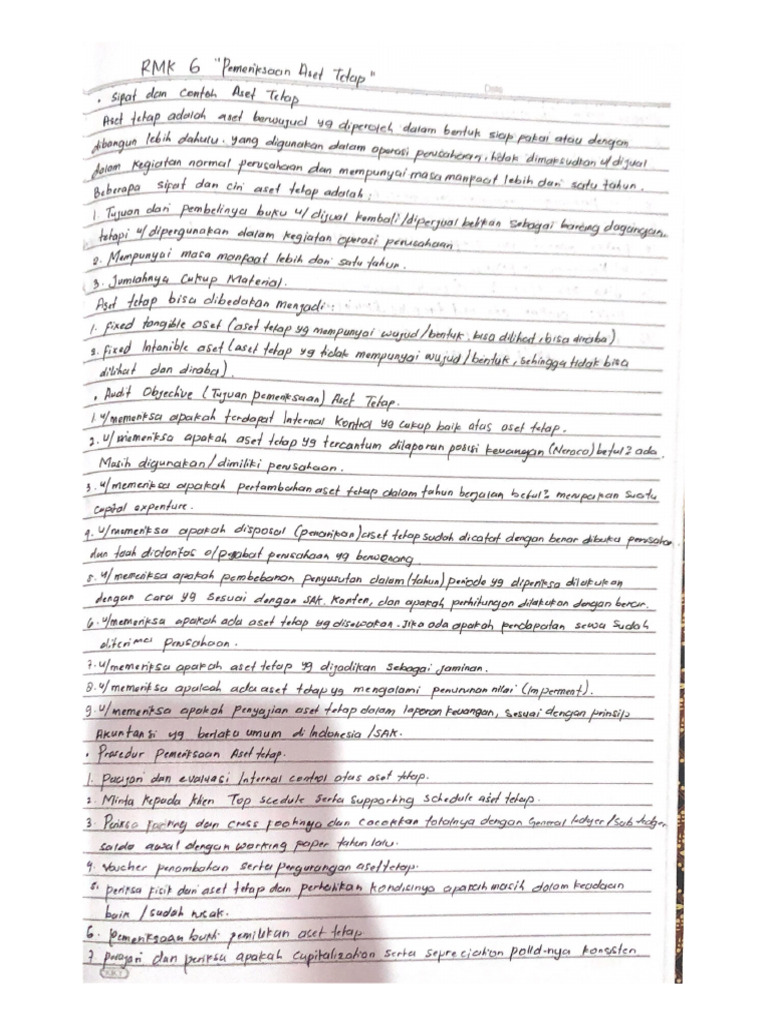 RMK 6 "Pemeriksaan Aset Tetap"
• Sipat dan Contoh Aset Tetap
Aset tetap adalah aset berwujud yg diperoleh dalam bentuk siap pakai atau dengan
dibangun lebih dahulu. yang digunakan dalam operasi perusahaan, tidak dimaksudkan u/ dijual
dalam kegiatan normal perusahaan dan mempunyai masa manpaat lebih dari satu tahun.
Beberapa sipat dan ciri aset tetap adalah :
1. Tujuan dari pembelinya buku u/ dijual kembali/diperjual belikan sebagai barang dagangan,
tetapi u/ dipergunakan dalam kegiatan operasi perusahaan
2. Mempunyai masa manfaat lebih dari satu tahun.
3. Jumlahnya Cukup Material.
Aset tetap bisa dibedakan menjadi :
1. fixed tangible aset (aset tetap yg mempunyai wujud/bentuk, bisa dilihad, bisa diraba)
2. fixed Intanible aset (aset tetap yg tidak mempunyai wujud/bentuk, sehingga tidak bisa
dilihat dan diraba).
• Audit Objective (Tujuan pemeriksaan) Aset Tetap.
1. u/memeriksa apakah terdapat Internal Kontrol yg cukup baik atas aset tetap.
2. u/memeriksa apakah aset tetap yg tercantum dilaporan posisi keuangan (Neraca) betul² ada.
Masih digunakan/dimiliki perusahaan.
3. u/memeriksa apakah pertambahan aset tetap dalam tahun berjalan betul² merupakan suatu
capital expenture.
4. u/memeriksa apakah disposal (penarikan) aset tetap sudah dicatat dengan benar dibuku
dan telah diotoritas o/ perusahaan yg berwenang
5. u/memeriksa apakah pembebanan penyusutan dalam (tahun) periode yg diperiksa dilakukan
dengan cara yg sesuai dengan SAK. Konten, dan apakah perhitungan dilakukan dengan benar.
6. u/memeriksa apakah ada aset tetap yg disewakan. Jika ada apakah pendapatan sewa sudah
diterima perusahaan.
7. u/memeriksa apakah aset tetap yg dijadikan sebagai jaminan.
8. u/memeriksa apakah ada aset tetap yg mengalami penurunan nilai (Imperment).
9. u/memeriksa apakah penyajian aset tetap dalam laporan keuangan, sesuai dengan prinsip
Akuntansi yg berlaku umum di Indonesia/SAK.
• Prosedur Pemeriksaan Aset tetap.
1. Pelajari dan evaluasi Internal control atas aset tetap.
2. Minta Kepada klien Top scedule serta supporting schedule aset tetap.
3. Periksa footing dan cross footingnya dan cocokkan totalnya dengan General Ledger/Sub ledger
saldo awal dengan working paper tahun lalu.
4. Voucher penambahan serta pengurangan aset tetap.
5. periksa fisik dari aset tetap dan perhatikan kondisinya apakah masih dalam keadaan
baik / sudah rusak.
6. pemeriksaan bukti pemilikan aset tetap
7. pelajari dan periksa apakah Capitalization serta sepreciation konsisten